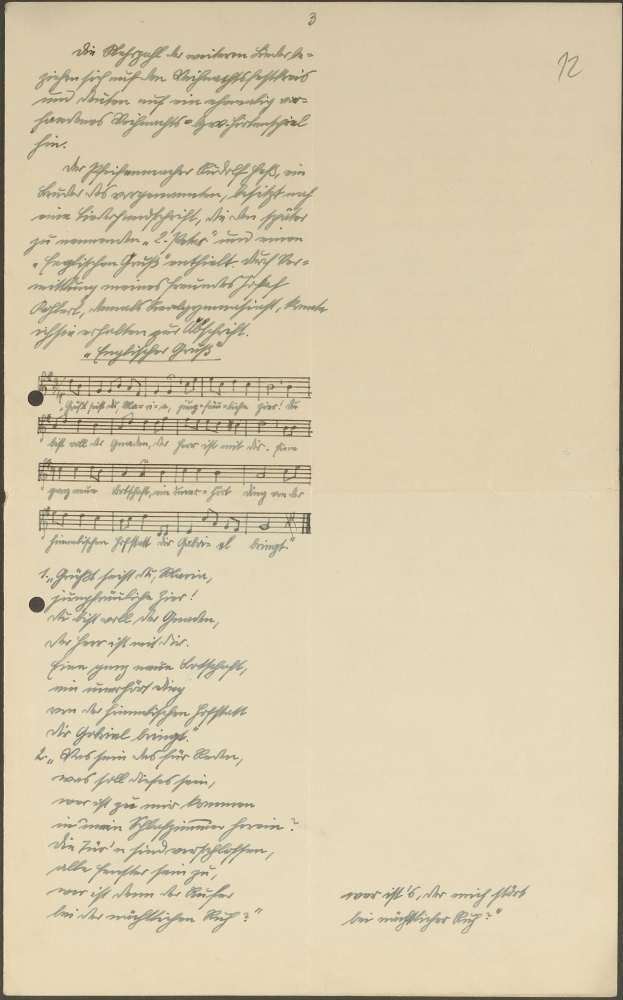 3
12
Die Mehrzahl der weiteren Lieder be-
ziehen sich auf den Weihnachtsfestkreis
und deuten auf ein ehemalig vor-
handenes Weihnachts- bzw. Hirtenspiel
hin.
Der Pfeifenmacher Rudolf Heß, ein
Bruder des vorgenannten, besitzt auch
eine Liederhandschrift, die den später
zu nennenden „2. Pater" und einen
„Englischen Gruß" enthielt. Durch Ver-
mittlung meines Freundes Josef
damals Realgymnasiast, konnte
ich sie erhalten zur Abschrift.
„Englischer Gruß"
„Grüßt seist du, Mar-i-a, jung-fräu-liche Zier! Du
bist voll der Gnaden, der Herr ist mit dir. Eine
ganz neue Botschaft, ein uner-hört Ding von der
himmlischen Hofstatt dir Gabri-el bringt."
1. „Grüßt seist du, Maria,
jungfräuliche Zier!
Du bist voll der Gnaden,
der Herr ist mit dir.
Eine ganz neue Botschaft,
ein unerhört Ding
von der himmlischen Hofstatt
dir Gabriel bringt."
2. „Was sein das für Reden,
was soll dieses sein,
wer ist zu mir kommen
in mein Schlafzimmer herein?
Die Tür'n sind verschlossen,
alle Fenster sein zu,
wer ist denn der Rufer
bei der nächtlichen Ruh?"
wer ist's, der mich stört
bei nächtlicher Ruh?"